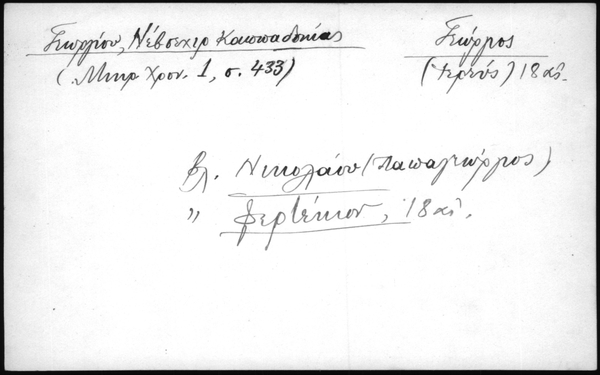 Γεωργίου, Νέβσεχιρ Καππαδοκίας
(Μικρ Χρον. 1, σ. 433)
Γεώργιος
(ιερεύς) 18 αἰ.
βλ. Νικολάου (Παπαγεώργιος)
" Φερτέκιον, 18 αἰ.